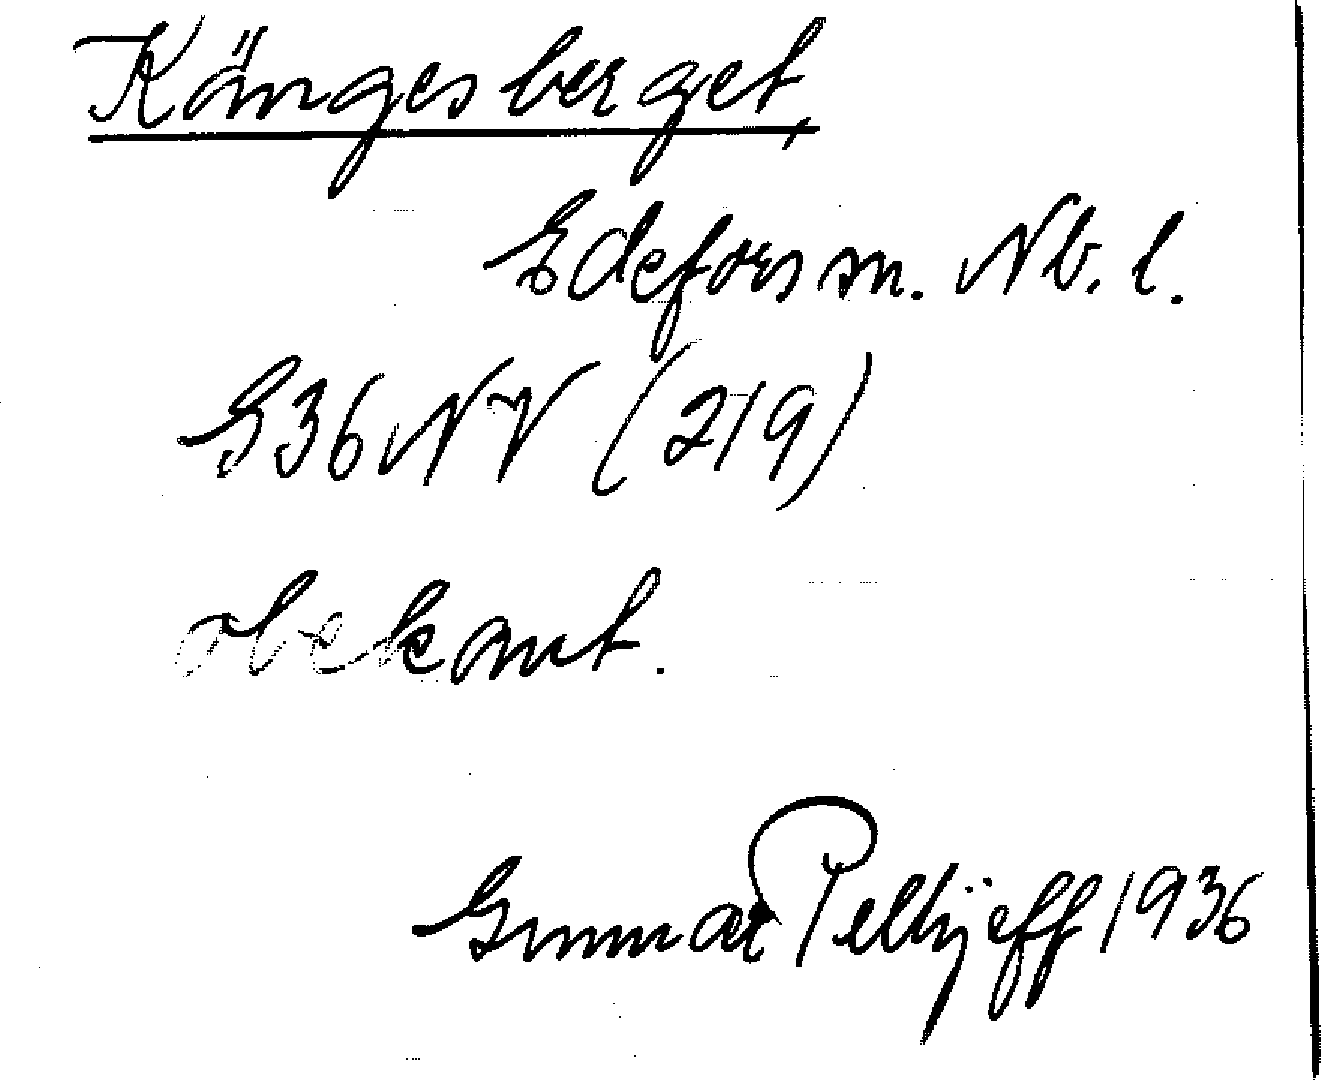 Kängesberget,
Edefors sn. Nb. l.
S36NV (219)
obekant.
Gunnar Pellijeff 1936